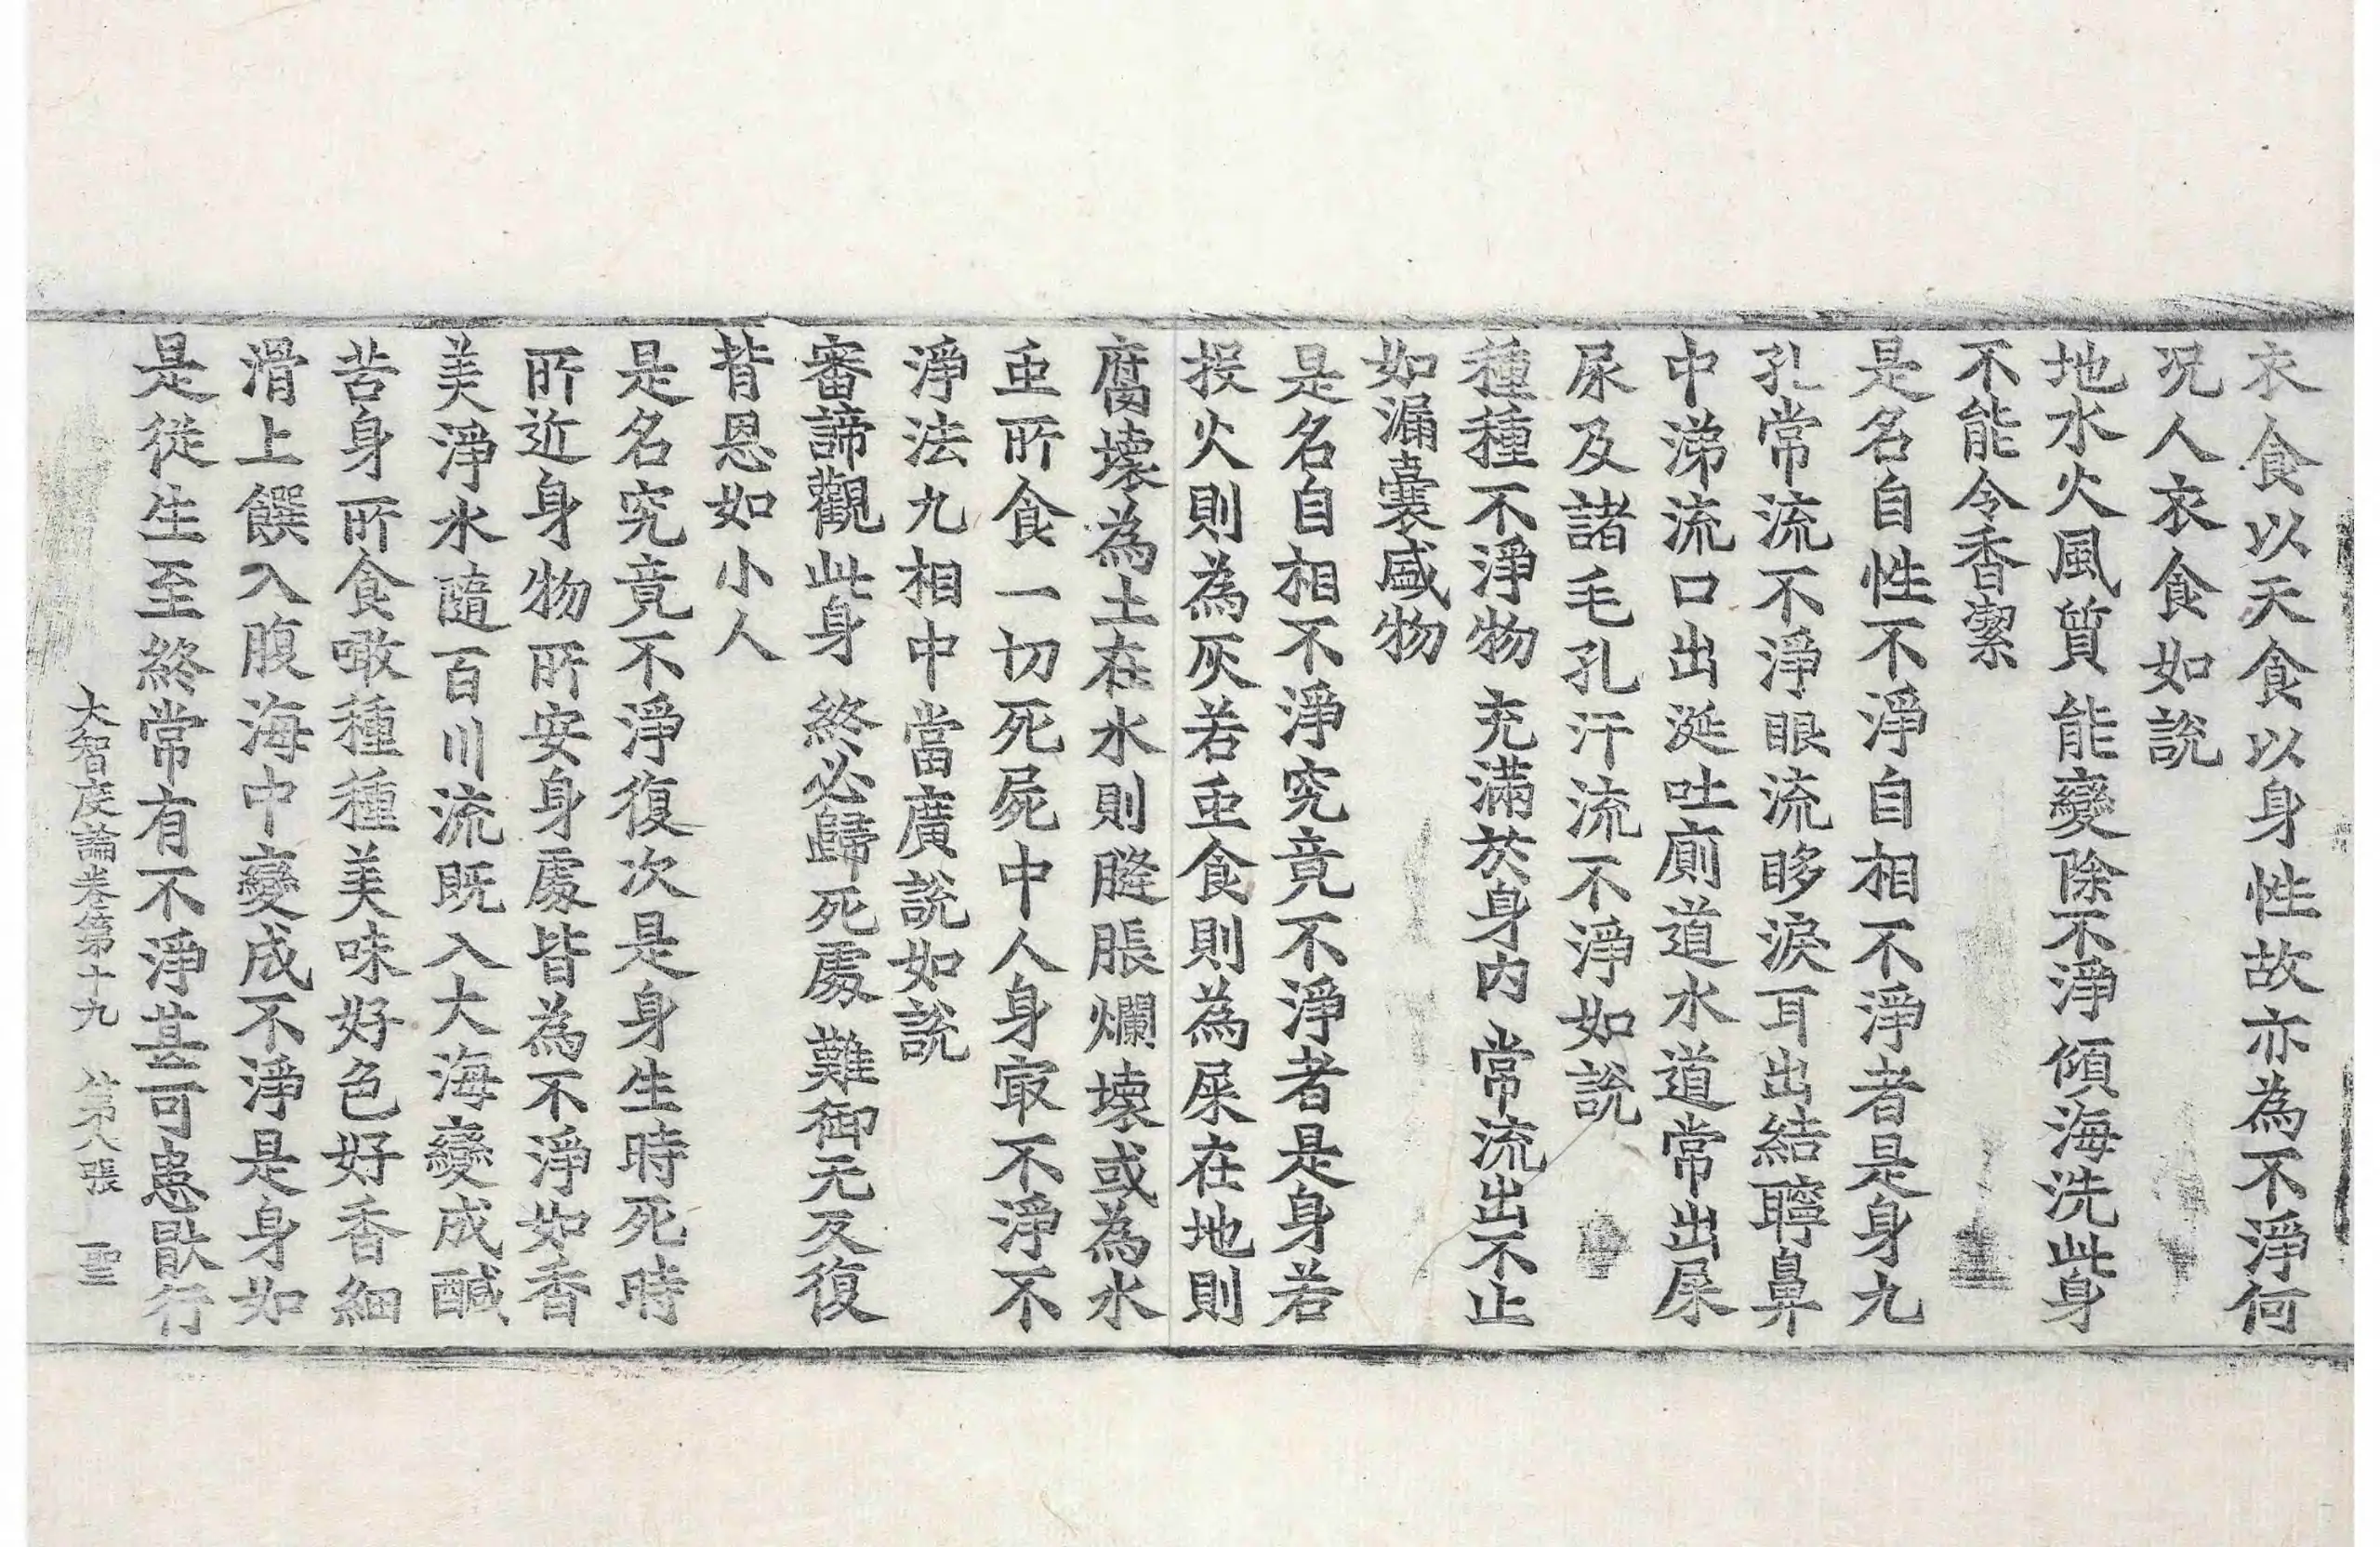 衣食以天食以身性故亦為不淨何
况人衣食如說
地水火風質 能變除不淨 傾海洗此身
不能令香潔
是名自性不淨自相不淨者是身九
孔常流不淨眼流眵淚耳出結聹鼻
中涕流口出涎吐廁道水道常出屎
尿及諸毛孔汗流不淨如說
種種不淨物 充滿於身內 常流出不止
如漏囊盛物
是名自相不淨究竟不淨者是身若
投火則為灰若䖝食則為屎在地則
腐壞為土在水則膖脹爛壞或為水
䖝所食一切死屍中人身冣不淨不
淨法九相中當廣說如說
審諦觀此身 終必歸死處 難御无反復
背恩如小人
是名究竟不淨復次是身生時死時
所近身物所安身處皆為不淨如香
美淨水隨百川流既入大海變成醎
苦身所食噉種種美味好色好香細
滑上饌入腹海中變成不淨是身如
是從生至終常有不淨甚可患猒行
大智度論卷第十九 第八張 聖